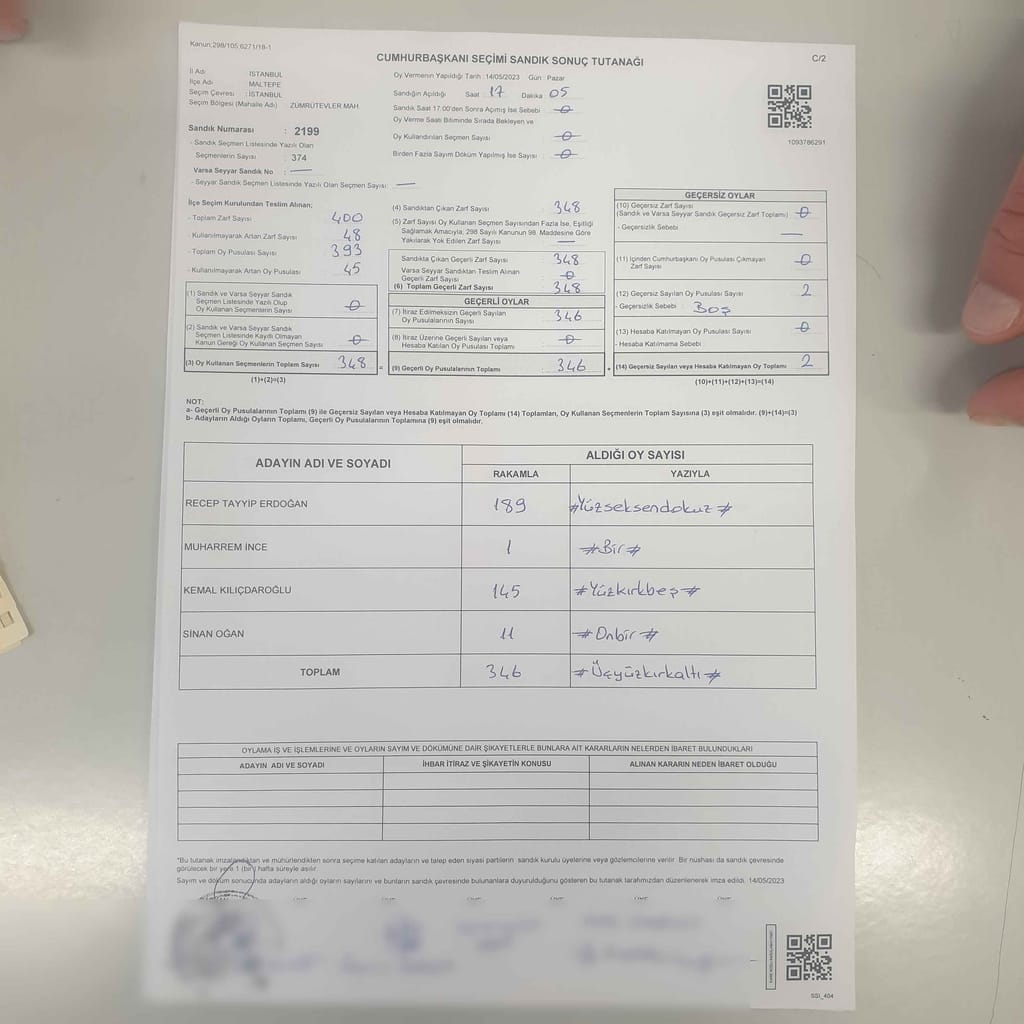 Kanun;298/105;6271/18-1
CUMHURBAŞKANI SEÇİMİ SANDIK SONUÇ TUTANAĞI
C/2
İl Adı : İSTANBUL
İlçe Adı : MALTEPE
Seçim Çevresi : İSTANBUL
Seçim Bölgesi (Mahalle Adı) : ZÜMRÜTEVLER MAH.
Sandık Numarası : 2199
- Sandık Seçmen Listesinde Yazılı Olan
Seçmenlerin Sayısı : 374
Varsa Seyyar Sandık No : —
- Seyyar Sandık Seçmen Listesinde Yazılı Olan Seçmen Sayısı: —
Oy Vermenin Yapıldığı Tarih : 14/05/2023 Gün : Pazar
Sandığın Açıldığı Saat 17 Dakika 05
Sandık Saat 17.00'den Sonra Açmış İse Sebebi 0
Oy Verme Saati Bitiminde Sırada Bekleyen ve
Oy Kullandırılan Seçmen Sayısı 0
Birden Fazla Sayım Döküm Yapılmış İse Sayısı 0
1093786291
İlçe Seçim Kurulundan Teslim Alınan;
- Toplam Zarf Sayısı 400
- Kullanılmayarak Artan Zarf Sayısı 48
- Toplam Oy Pusulası Sayısı 393
- Kullanılmayarak Artan Oy Pusulası 45
(1) Sandık ve Varsa Seyyar Sandık
Seçmen Listesinde Yazılı Olup
Oy Kullanan Seçmenlerin Sayısı 0
(2) Sandık ve Varsa Seyyar Sandık
Seçmen Listesinde Kaydı Olmayan
Kanun Gereği Oy Kullanan Seçmen Sayısı 0
(3) Oy Kullanan Seçmenlerin Toplam Sayısı 348 =
(1)+(2)=(3)
(4) Sandıktan Çıkan Zarf Sayısı 348
(5) Zarf Sayısı Oy Kullanan Seçmen Sayısından Fazla İse, Eşitliği
Sağlamak Amacıyla; 298 Sayılı Kanunun 98. Maddesine Göre
Yakılarak Yok Edilen Zarf Sayısı —
Sandıkta Çıkan Geçerli Zarf Sayısı 348
Varsa Seyyar Sandıktan Teslim Alınan
Geçerli Zarf Sayısı 0
(6) Toplam Geçerli Zarf Sayısı 348
GEÇERLİ OYLAR
(7) İtiraz Edilmeksizin Geçerli Sayılan
Oy Pusulalarının Sayısı 346
(8) İtiraz Üzerine Geçerli Sayılan veya
Hesaba Katılan Oy Pusulası Toplamı 0
(9) Geçerli Oy Pusulalarının Toplamı : 346 +
GEÇERSİZ OYLAR
(10) Geçersiz Zarf Sayısı
(Sandık ve Varsa Seyyar Sandık Geçersiz Zarf Toplamı) 0
- Geçersizlik Sebebi —
(11) İçinden Cumhurbaşkanı Oy Pusulası Çıkmayan
Zarf Sayısı 0
(12) Geçersiz Sayılan Oy Pusulası Sayısı 2
- Geçersizlik Sebebi : Boş
(13) Hesaba Katılmayan Oy Pusulası Sayısı 0
- Hesaba Katılmama Sebebi :
(14) Geçersiz Sayılan veya Hesaba Katılmayan Oy Toplamı 2
(10)+(11)+(12)+(13)=(14)
NOT:
a- Geçerli Oy Pusulalarının Toplamı (9) ile Geçersiz Sayılan veya Hesaba Katılmayan Oy Toplamı (14) Toplamları, Oy Kullanan Seçmenlerin Toplam Sayısına (3) eşit olmalıdır. (9)+(14)=(3)
b- Adayların Aldığı Oyların Toplamı, Geçerli Oy Pusulalarının Toplamına (9) eşit olmalıdır.
ADAYIN ADI VE SOYADI
ALDIĞI OY SAYISI
RAKAMLA YAZIYLA
RECEP TAYYİP ERDOĞAN 189 #Yüzseksendokuz#
MUHARREM İNCE 1 #Bir#
KEMAL KILIÇDAROĞLU 145 #Yüzkırkbeş#
SİNAN OĞAN 11 #Onbir#
TOPLAM 346 #Üçyüzkırkaltı#
OYLAMA İŞ VE İŞLEMLERİNE VE OYLARIN SAYIM VE DÖKÜMÜNE DAİR ŞİKAYETLERLE BUNLARA AİT KARARLARIN NELERDEN İBARET BULUNDUKLARI
ADAYIN ADI VE SOYADI İHBAR İTİRAZ VE ŞİKAYETİN KONUSU ALINAN KARARIN NEDEN İBARET OLDUĞU
*Bu tutanak imzalandıktan ve mühürlendikten sonra seçime katılan adayların ve talep eden siyasi partilerin sandık kurulu üyelerine veya gözlemcilerine verilir. Bir nüshası da sandık çevresinde
görülecek bir yere 1 (bir) hafta süreyle asılır.
Sayım ve döküm sonucunda adayların aldığı oyların sayılarını ve bunların sandık çevresinde bulunanlara duyurulduğunu gösteren bu tutanak tarafımızdan düzenlenerek imza edildi. 14/05/2023
SSI_404